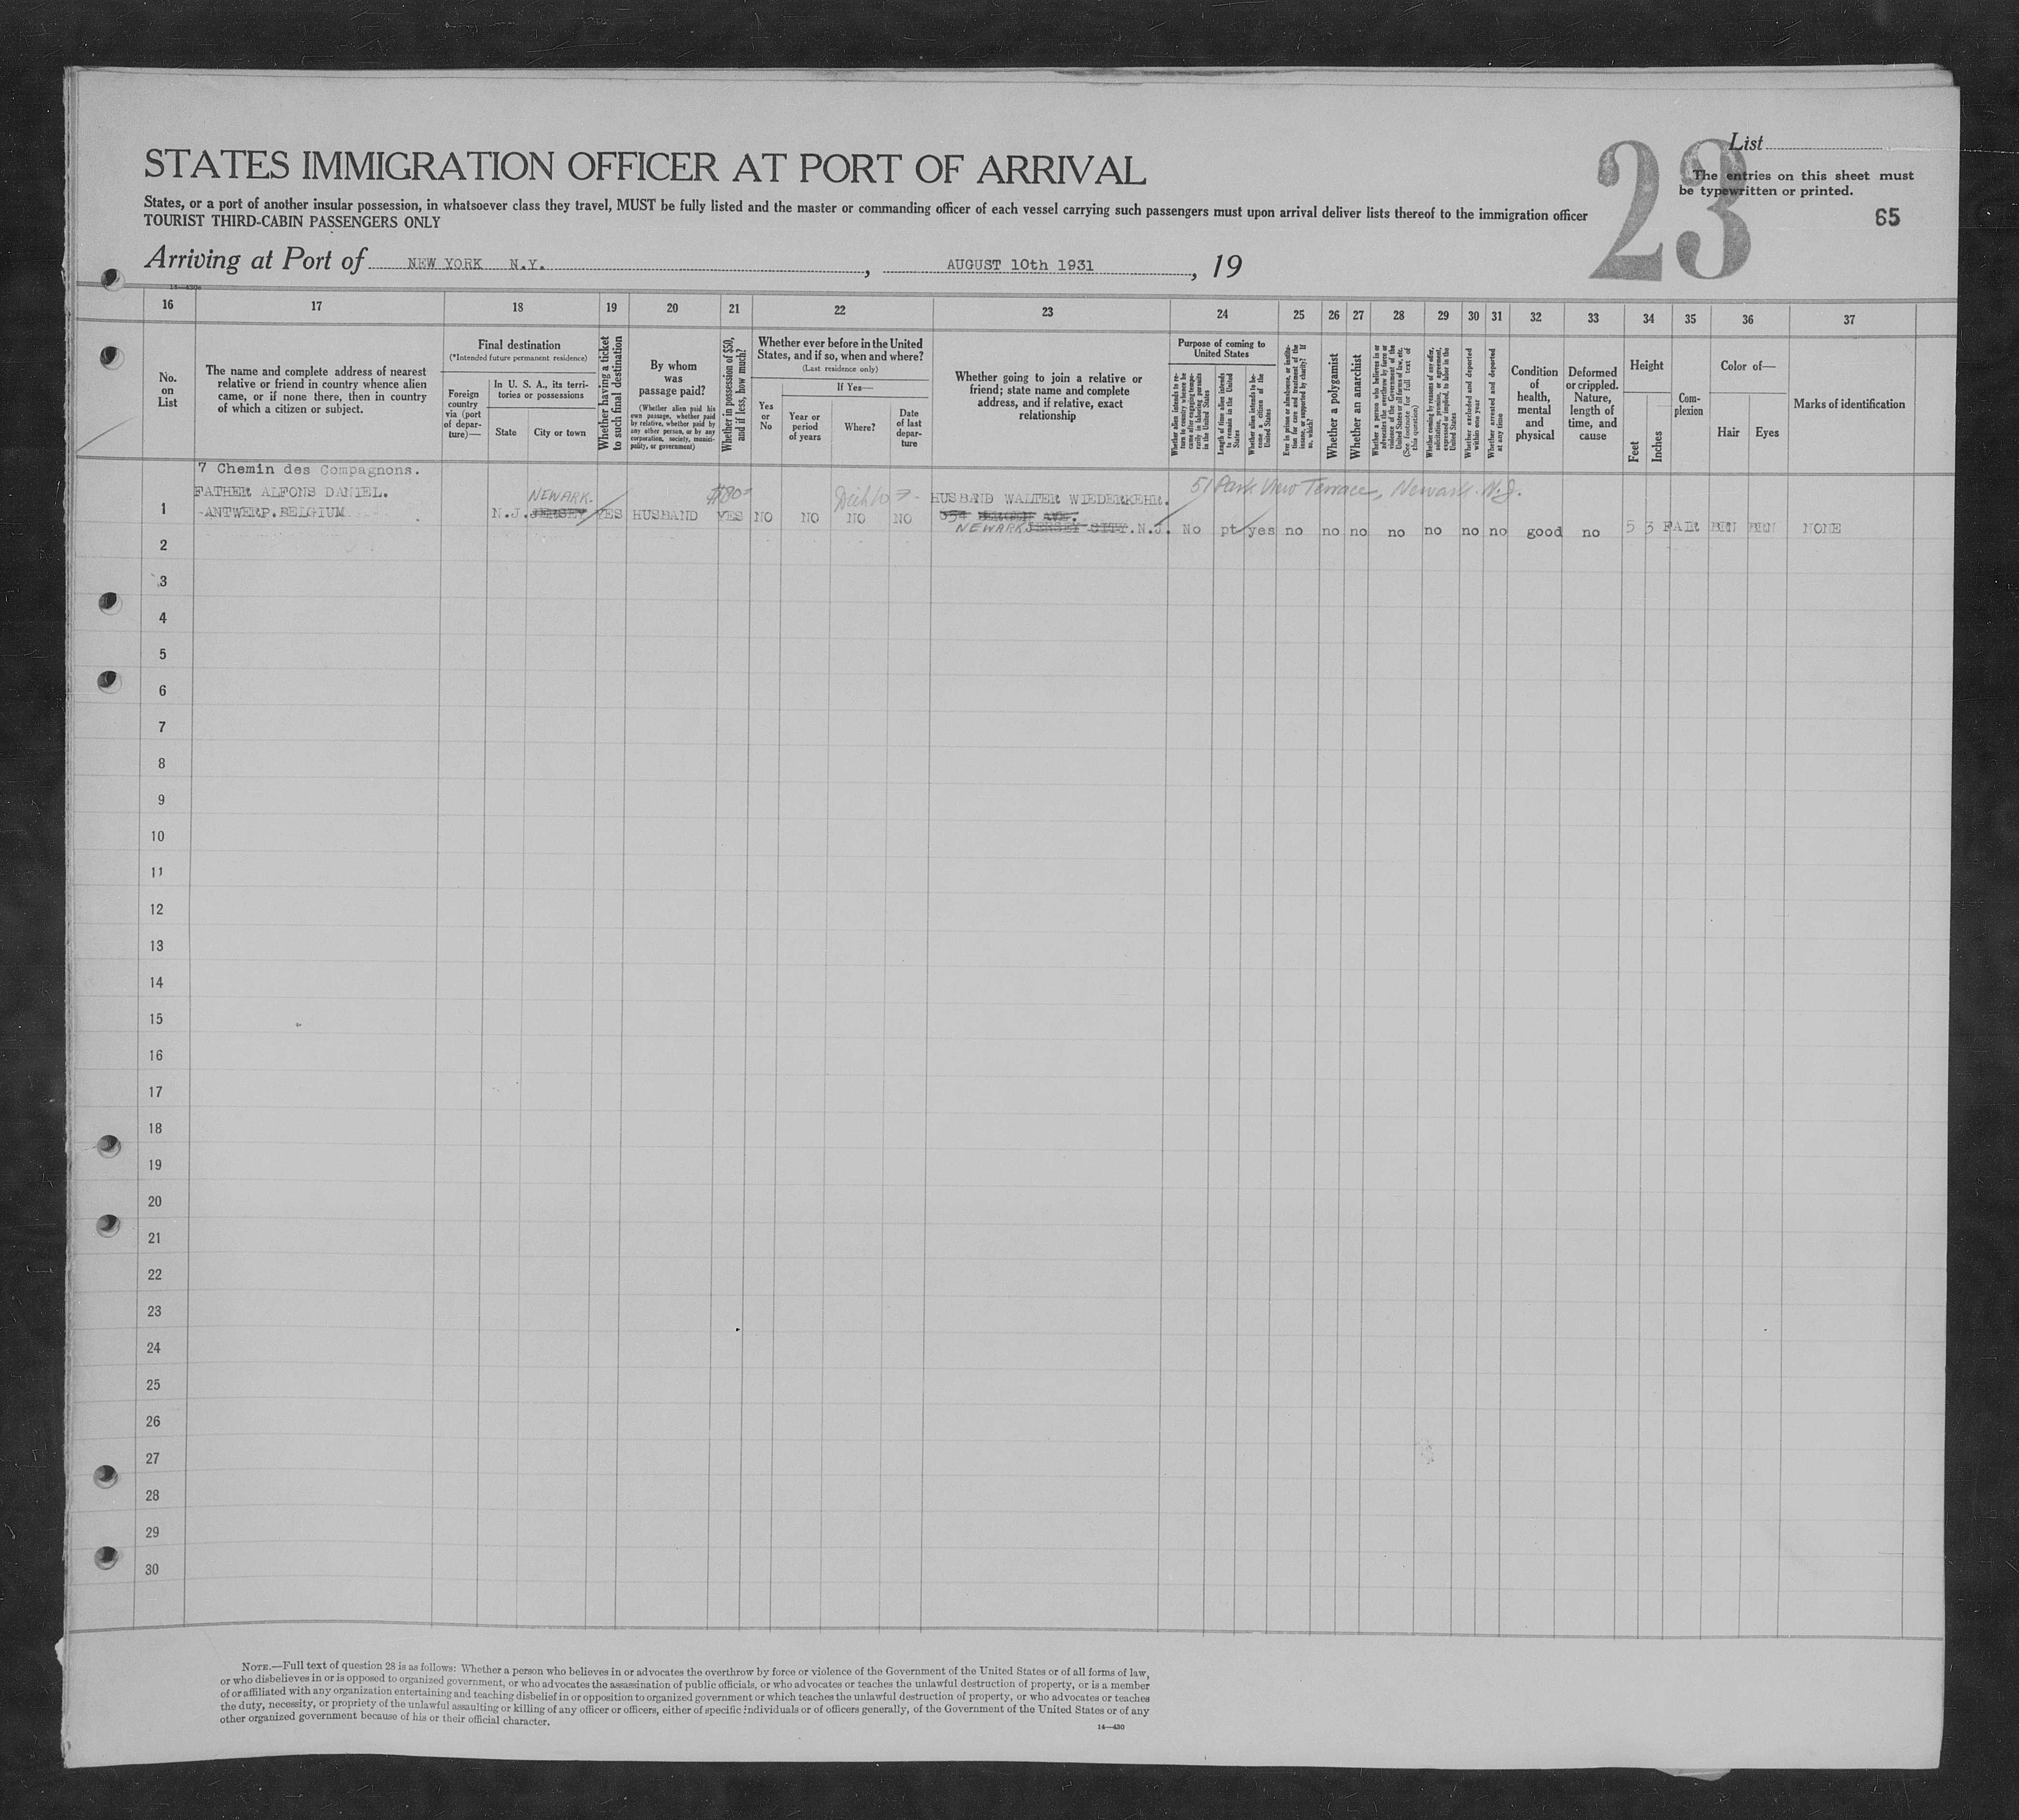 List
23
STATES IMMIGRATION OFFICER AT PORT OF ARRIVAL
The entries on this sheet must
be typewritten or printed.
States, or a port of another insular possession, in whatsoever class they travel, MUST be fully listed and the master or commanding officer of each vessel carrying such passengers must upon arrival deliver lists thereof to the immigration officer
TOURIST THIRD-CABIN PASSENGERS ONLY
65
Arriving at Port of NEW YORK N.Y. , AUGUST 10th 1931 , 19
16 17 18 19 20 21 22 23 24 25 26 27 28 29 30 31 32 33 34 35 36 37
No. on List
The name and complete address of nearest
relative or friend in country whence alien
came, or if none there, then in country
of which a citizen or subject.
Final destination
(*Intended future permanent residence)
Foreign country via (port of departure)—
In U. S. A., its territories or possessions
State
City or town
Whether having a ticket to such final destination
By whom was passage paid?
(Whether alien paid his own passage, whether paid by relative, whether paid by any other person, or by any corporation, society, municipality, or government)
Whether in possession of $50, and if less, how much?
Whether ever before in the United States, and if so, when and where?
(Last residence only)
Yes or No
If Yes—
Year or period of years
Where?
Date of last departure
Whether going to join a relative or
friend; state name and complete
address, and if relative, exact
relationship
Purpose of coming to United States
Whether alien intends to return to country whence he came after engaging temporarily in laboring pursuits in the United States
Length of time alien intends to remain in the United States
Whether alien intends to become a citizen of the United States
Ever in prison or almshouse, or institution for care and treatment of the insane, or supported by charity? If so, which?
Whether a polygamist
Whether an anarchist
Whether a person who believes in or advocates the overthrow by force or violence of the Government of the United States or all forms of law, etc. (See footnote for full text of this question)
Whether coming by reason of any offer, solicitation, promise, or agreement, expressed or implied, to labor in the United States
Whether excluded and deported within one year
Whether arrested and deported at any time
Condition of health, mental and physical
Deformed or crippled. Nature, length of time, and cause
Height
Feet
Inches
Complexion
Color of—
Hair
Eyes
Marks of identification
7 Chemin des Compagnons.
FATHER ALFONS DANIEL. NEWARK. $80 HUSBAND WALTER WIEDERKEHR. 51 Park View Terrace, Newark. N.J.
1 ANTWERP.BELGIUM N.J. JERSEY YES HUSBAND YES NO NO NO NO 354 BERGEN AVE.
NEWARK JERSEY CITY.N.J. No pt yes no no no no no no no good no 5 3 FAIR BRN BRN NONE
2
3
4
5
6
7
8
9
10
11
12
13
14
15
16
17
18
19
20
21
22
23
24
25
26
27
28
29
30
NOTE.—Full text of question 28 is as follows: Whether a person who believes in or advocates the overthrow by force or violence of the Government of the United States or of all forms of law,
or who disbelieves in or is opposed to organized government, or who advocates the assassination of public officials, or who advocates or teaches the unlawful destruction of property, or is a member
of or affiliated with any organization entertaining and teaching disbelief in or opposition to organized government or which teaches the unlawful destruction of property, or who advocates or teaches
the duty, necessity, or propriety of the unlawful assaulting or killing of any officer or officers, either of specific individuals or of officers generally, of the Government of the United States or of any
other organized government because of his or their official character.
14—430